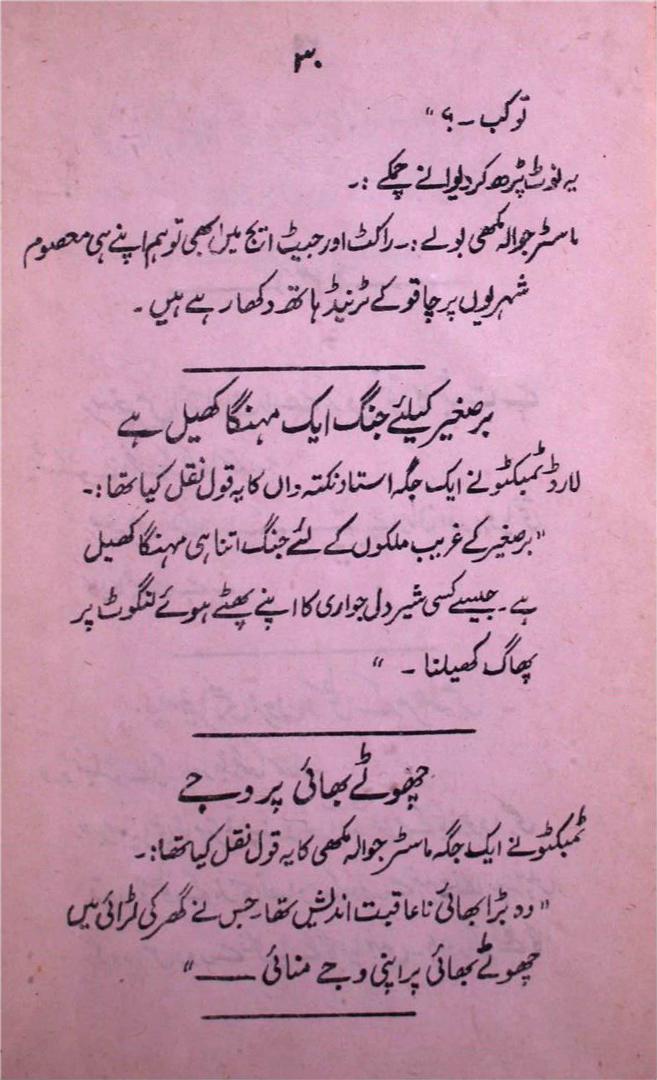 ۳۰
تو کب ۔ ؟ "
یہ نوٹ پڑھ کر دیوانے چمکے :۔
ماسٹر جوالہ مکھی بولے :۔ راکٹ اور جیٹ ایج میں بھی تو ہم اپنے ہی معصوم
شہریوں پر چاقو کے ٹرینڈ ہاتھ دکھا رہے ہیں ۔
برصغیر کیلئے جنگ ایک مہنگا کھیل ہے
لارڈ ٹمبکٹو نے ایک جگہ استاد نکتہ داں کا یہ قول نقل کیا تھا :۔
" برصغیر کے غریب ملکوں کے لئے جنگ اتنا ہی مہنگا کھیل
ہے ۔ جیسے کسی شیر دل جواری کا اپنے پھٹے ہوئے لنگوٹ پر
پھاگ کھیلنا ۔ "
چھوٹے بھائی پر وجے
ٹمبکٹو نے ایک جگہ ماسٹر جوالہ مکھی کا یہ قول نقل کیا تھا :۔
" وہ بڑا بھائی ناعاقبت اندیش تھا ۔ جس نے گھر کی لڑائی میں
چھوٹے بھائی پر اپنی وجے منائی ــــــ "